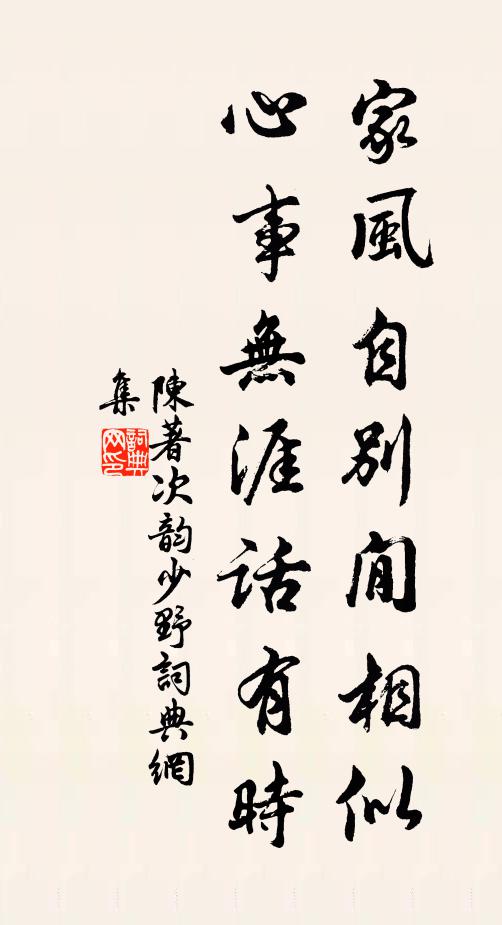 家風自別閒相似
心事無涯話有時
陳著次韵少野詞典網
集
詞典
网印